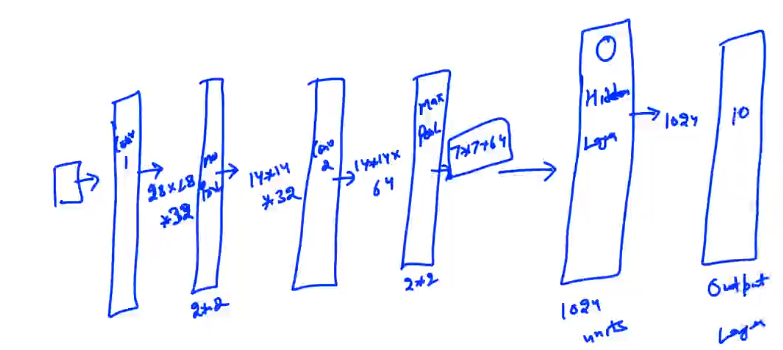 Conv
1
28*28
*32
Max
Pool
2*2
14*14
*32
Conv
2
14*14*
64
Max
Pool
2*2
7*7*64
Hidden
Layer
1024
units
1024
10
Output
Layer